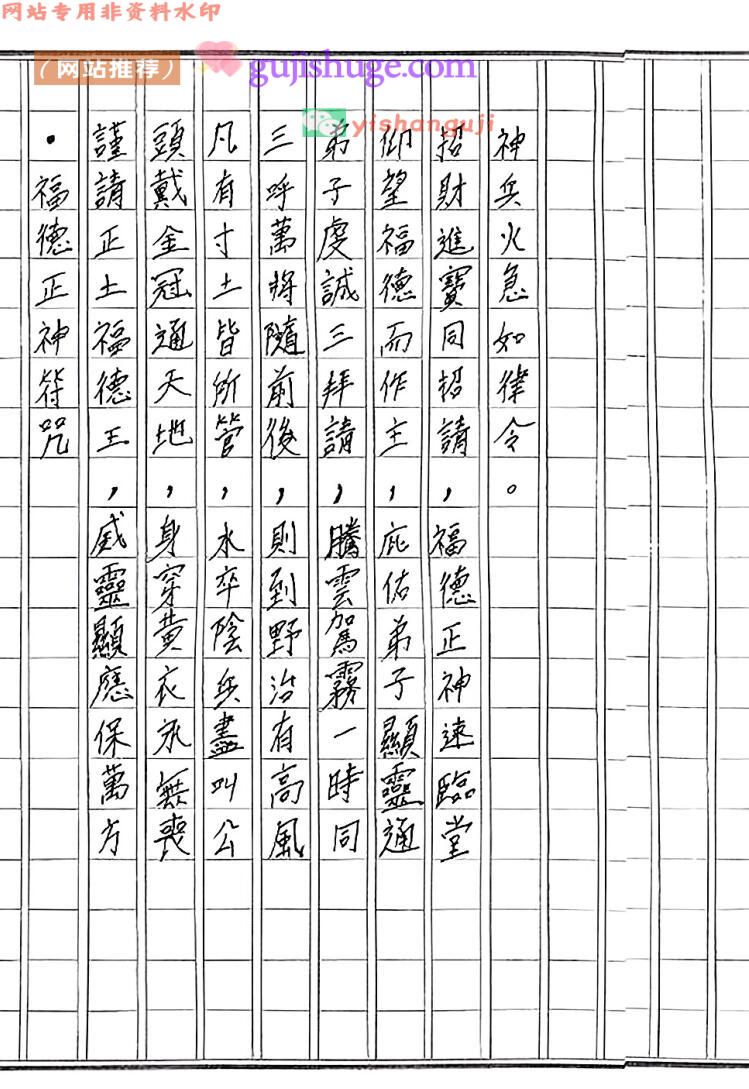 网站专用非资料水印
（网站推荐）
gujishuge.com
yishanguji
・福德正神符咒
謹請正土福德王，威靈顯應保萬方
頭戴金冠通天地，身穿黃衣永無喪
凡有寸土皆所管，水卒陰兵盡叫公
三呼萬將隨前後，則到野治有高風
弟子虔誠三拜請，騰雲駕霧一時同
仰望福德而作主，庇佑弟子顯靈通
招財進寶同招請，福德正神速臨堂
神兵火急如律令。